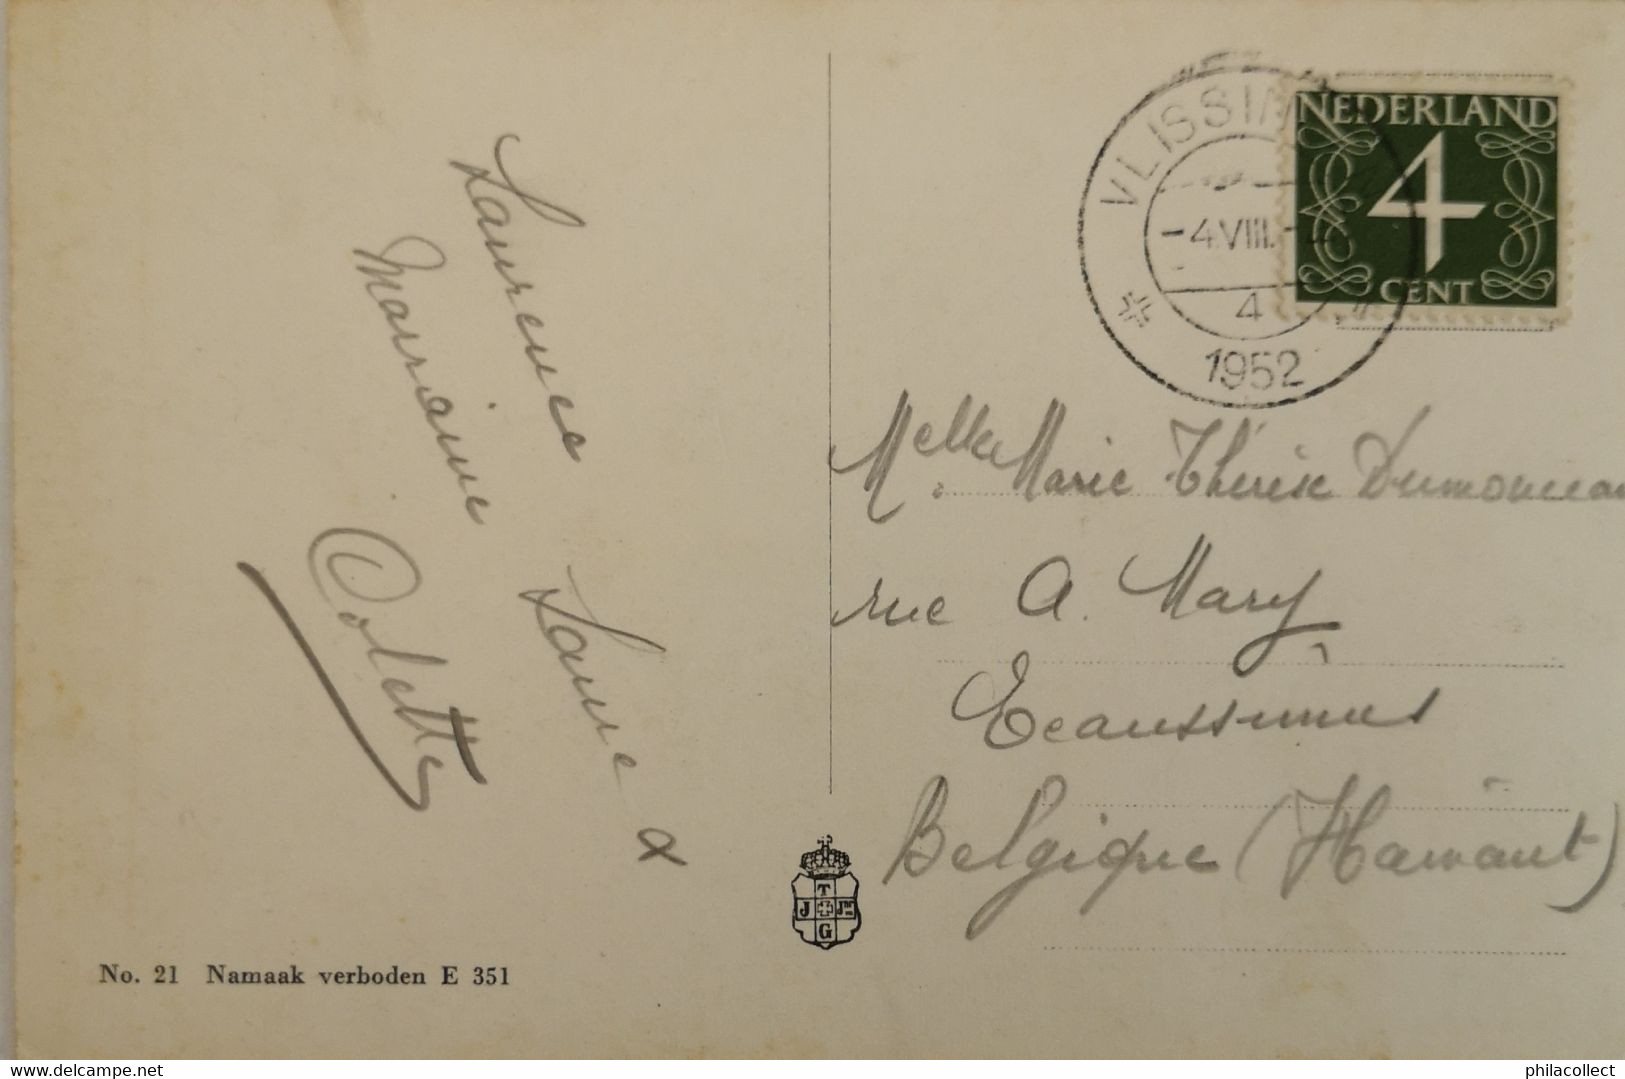 Laurence
Laure x
Marraine
Colette
No. 21 Namaak verboden E 351
T
J Jnr
G
VLISSIN
-4.VIII.
4
1952
NEDERLAND
4
CENT
Melle Marie Thérèse
rue A. Mary
Ecaussinnes
Belgique (Hainaut)
www.delcampe.net
philacollect